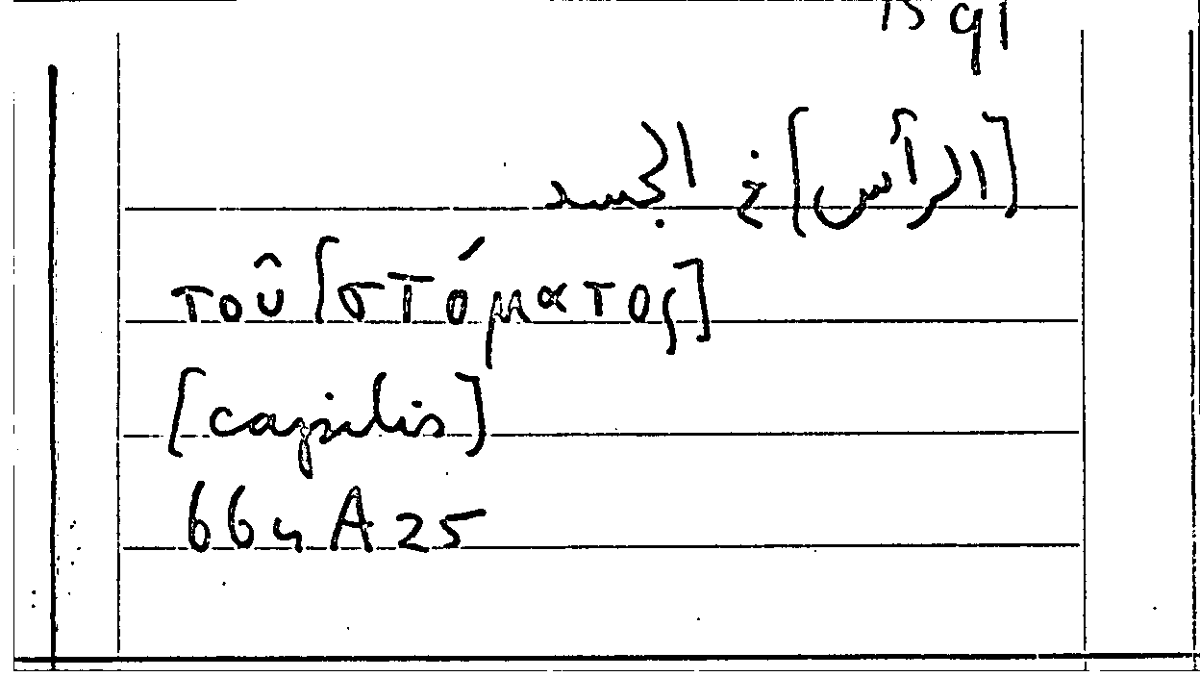 [الرأس] في الجسد
τοῦ [στόματος]
[capitis]
664 A 25